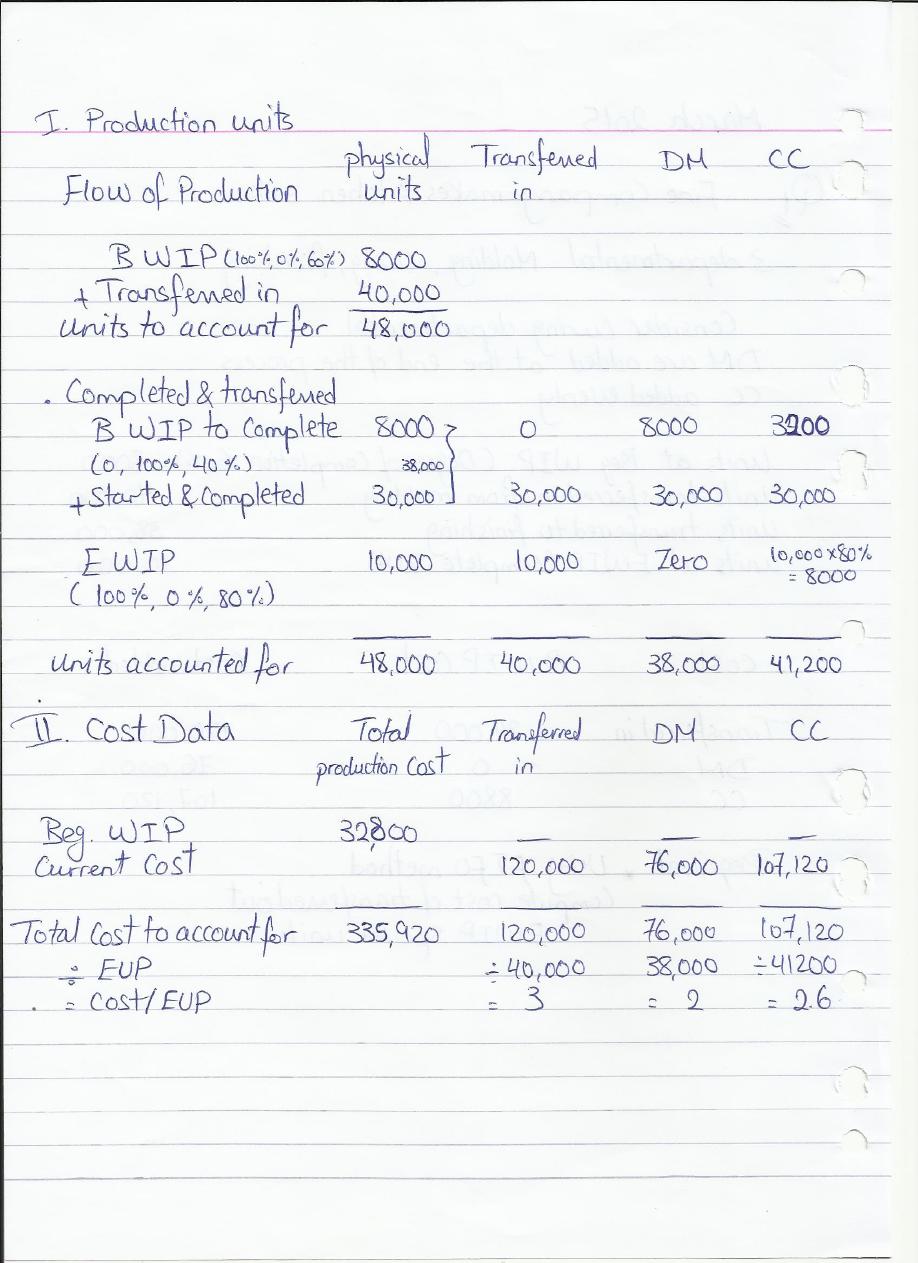 I. Production units
physical Transferred DM CC
Flow of Production units in
B WIP (100%, 0%, 60%) 8000
+ Transferred in 40,000
Units to account for 48,000
. Completed & transferred
B WIP to Complete 8000 0 8000 3200
(0, 100%, 40%) 38,000
+ Started & Completed 30,000 30,000 30,000 30,000
E WIP 10,000 10,000 Zero 10,000 x 80%
= 8000
( 100%, 0%, 80%)
Units accounted for 48,000 40,000 38,000 41,200
II. Cost Data Total Transferred DM CC
production Cost in
Beg. WIP 32,800 — — —
Current Cost 120,000 76,000 107,120
Total Cost to account for 335,920 120,000 76,000 107,120
÷ EUP ÷ 40,000 38,000 ÷ 41200
. = Cost/EUP = 3 = 2 = 2.6